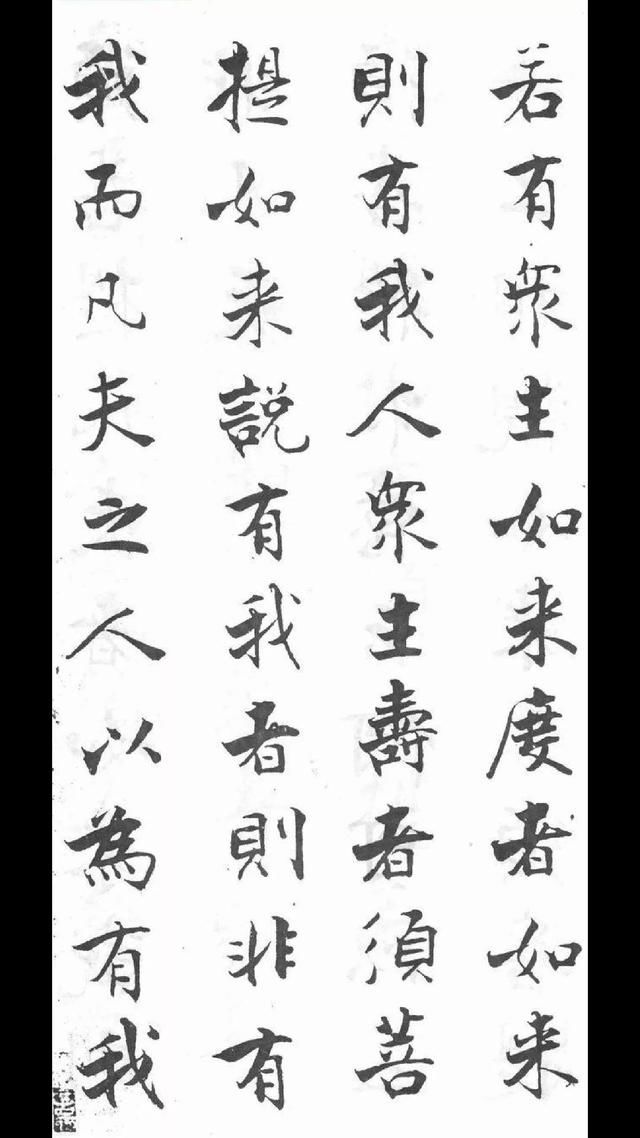 若有眾生如来度者如来
則有我人眾生壽者須菩
提如来説有我者則非有
我而凡夫之人以為有我